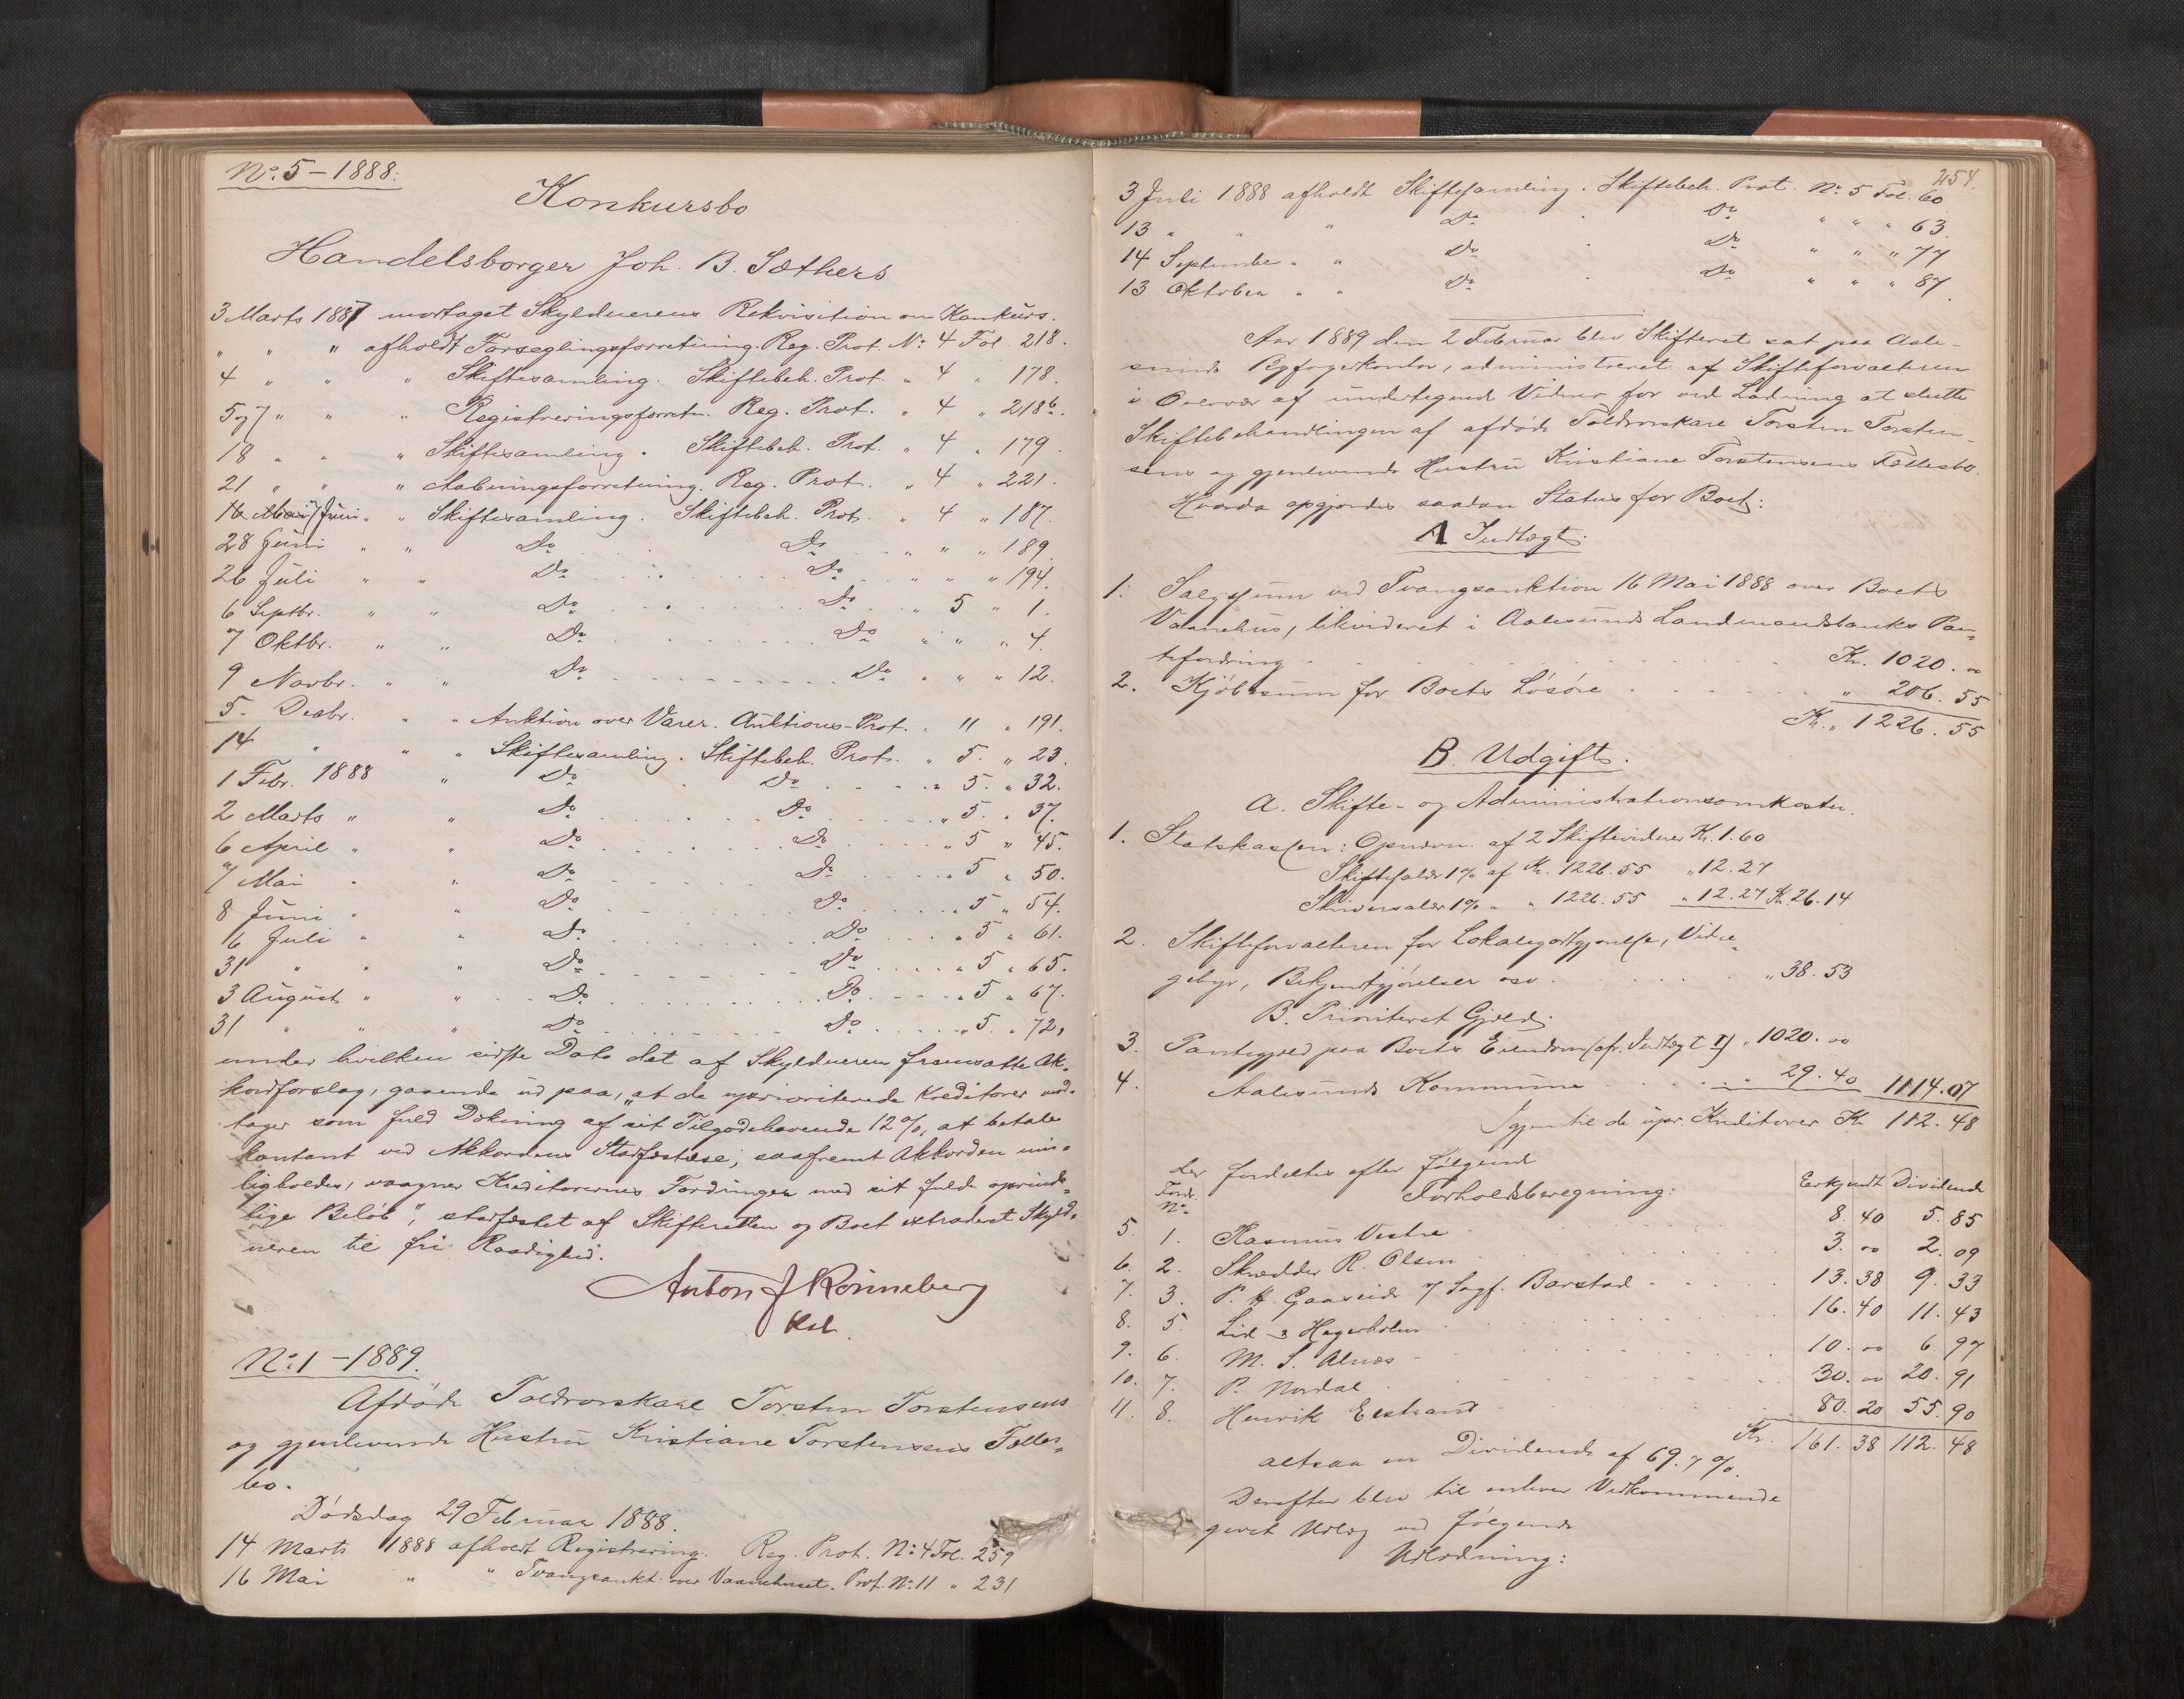 No. 5 – 1888:
Konkursbo
Handelsborger Joh. B. Sæthers
3 Marts 1887 modtaget Skyldnerens Rekvisition om Konkurs.
" " " afholdt Forseglingsforretning. Reg. Prot. No: 4 Fol. 218.
4 " " " Skiftesamling. Skiftebeh. Prot. " 4 " 178.
5 og 7 " " " Registreringsforretn. Reg. Prot. " 4 " 218b.
18 " " " Skiftesamling. Skiftebeh. Prot. " 4 " 179.
21 " " " Aabningsforretning. Reg. Prot. " 4 " 221.
16 Juni " " Skiftesamling. Skiftebeh. Prot. " 4 " 187.
28 Juni " " Do Do " " " 189.
26 Juli " " Do Do " " " 194.
6 Septbr. " " Do Do " 5 " 1.
7 Oktbr. " " Do Do " " " 4.
9 Novbr. " " Do Do " " " 12.
5. Desbr. " " Auktion over Varer. Auktions-Prot. " 11 " 191.
14 " " " Skiftesamling. Skiftebeh. Prot. " 5. " 23.
1 Febr. 1888 " Do Do " 5. " 32.
2 Marts " " Do Do " 5. " 37.
6 April " " Do Do " 5 " 45.
7 Mai " " Do Do " 5 " 50.
8 Juni " " Do Do " 5 " 54.
16 Juli " " Do Do " 5 " 61.
31 " " " Do Do " 5 " 65.
3 August " " Do Do " 5 " 67.
31 " " " Do Do " 5. " 72,
under hvilken sidste Dato det af Skyldneren fremsatte Ak-
kordforslag, gaaende ud paa, "at de uprioriterede Kreditorer mod-
tager som fuld Dækning af sit Tilgodehavende 12%, at betale
kontant ved Akkordens Stadfæstelse; saafremt Akkorden mis-
ligholdes, vaagner Kreditorernes Fordringer med sit fulde oprinde-
lige Beløb", stadfæstet af Skifteretten og Boet extraderet Skyld-
neren til fri Raadighed.
Anton J Rönneberg
Kst.
No. 1 – 1889.
Afdøde Toldrorskarl Torsten Torstensens
og gjenlevende Hustru Kristiane Torstensens Fælles-
bo.
Dødsdag 29 Februar 1888.
14 Marts 1888 afholdt Registrering. Reg. Prot. No: 4 Fol. 259
16 Mai " " Tvangsaukt. over Vaanehuset. Prot. No. 11 " 231
254.
3 Juli 1888 afholdt Skiftesamling. Skiftebeh. Prot. No. 5 Fol. 60
13 " " " Do Do " " " 63.
14 September " " Do Do " " " 77
13 Oktober " " Do Do " " " 87.
Aar 1889 den 2 Februar blev Skifteret sat paa Aale-
sunds Byfogedkontor, administreret af Skifteforvalteren
i Overvær af undertegnede Vidner for ved Lodning at slutte
Skiftebehandlingen af afdøde Toldrorskarl Torsten Torsten-
sens og gjenlevende Hustru Kristiane Torstensens Fællesbo.
Hvorda opgjordes saadan Status for Boet:
A Indtægt.
1. Salgssum ved Tvangsauktion 16 Mai 1888 over Boets
Vaanehus, likvideret i Aalesunds Landmandsbanks Pan-
tefordring Kr. 1020. "
2. Kjøbesum for Boets Løsøre " 206. 55
Kr. " 1226. 55
B. Udgift.
a. Skifte- og Administrationsomkoster.
1. Statskassen: Opnævn. af 2 Skiftevidner Kr. 1.60
Skiftesalær 1% af Kr. 1226.55 " 12.27
Skriversalær 1% " " 1226.55 " 12.27 Kr. 26.14
2. Skifteforvalteren for Lokalegodtgjørelse, Vidne-
gebyr, Bekjendtgjørelser osv. " 38.53
B. Prioriteret Gjæld.
3. Pantegjæld paa Boets Eiendom (cfr. Indtægt 1) " 1020. "
4. Aalesunds Kommune " 29.40 1114.07
Igjen til de upr. Kreditorer Kr. 112.48
der fordeltes efter følgende
Forholdsberegning:
Ford. No. Erkjendt Dividende
5. 1. Rasmus Vestre 8. 40 5. 85
6. 2. Skrædder R. Olsen 3. " 2. 09
7. 3. P. H. Gaaseide v/ Sagf. Barstad 13. 38 9. 33
8. 5. Lid & Hagerholm 16. 40 11. 43
9. 6. M. S. Alnæs 10. " 6. 97
10. 7. P. Nordal 30. " 20. 91
11. 8. Henrik Eestrand 80. 20 55. 90
Kr. 161. 38 112. 48
altsaa en Dividende af 69.7 %.
Derefter blev til enhver Vedkommende
gjort Udlæg ved følgende
Udlodning: